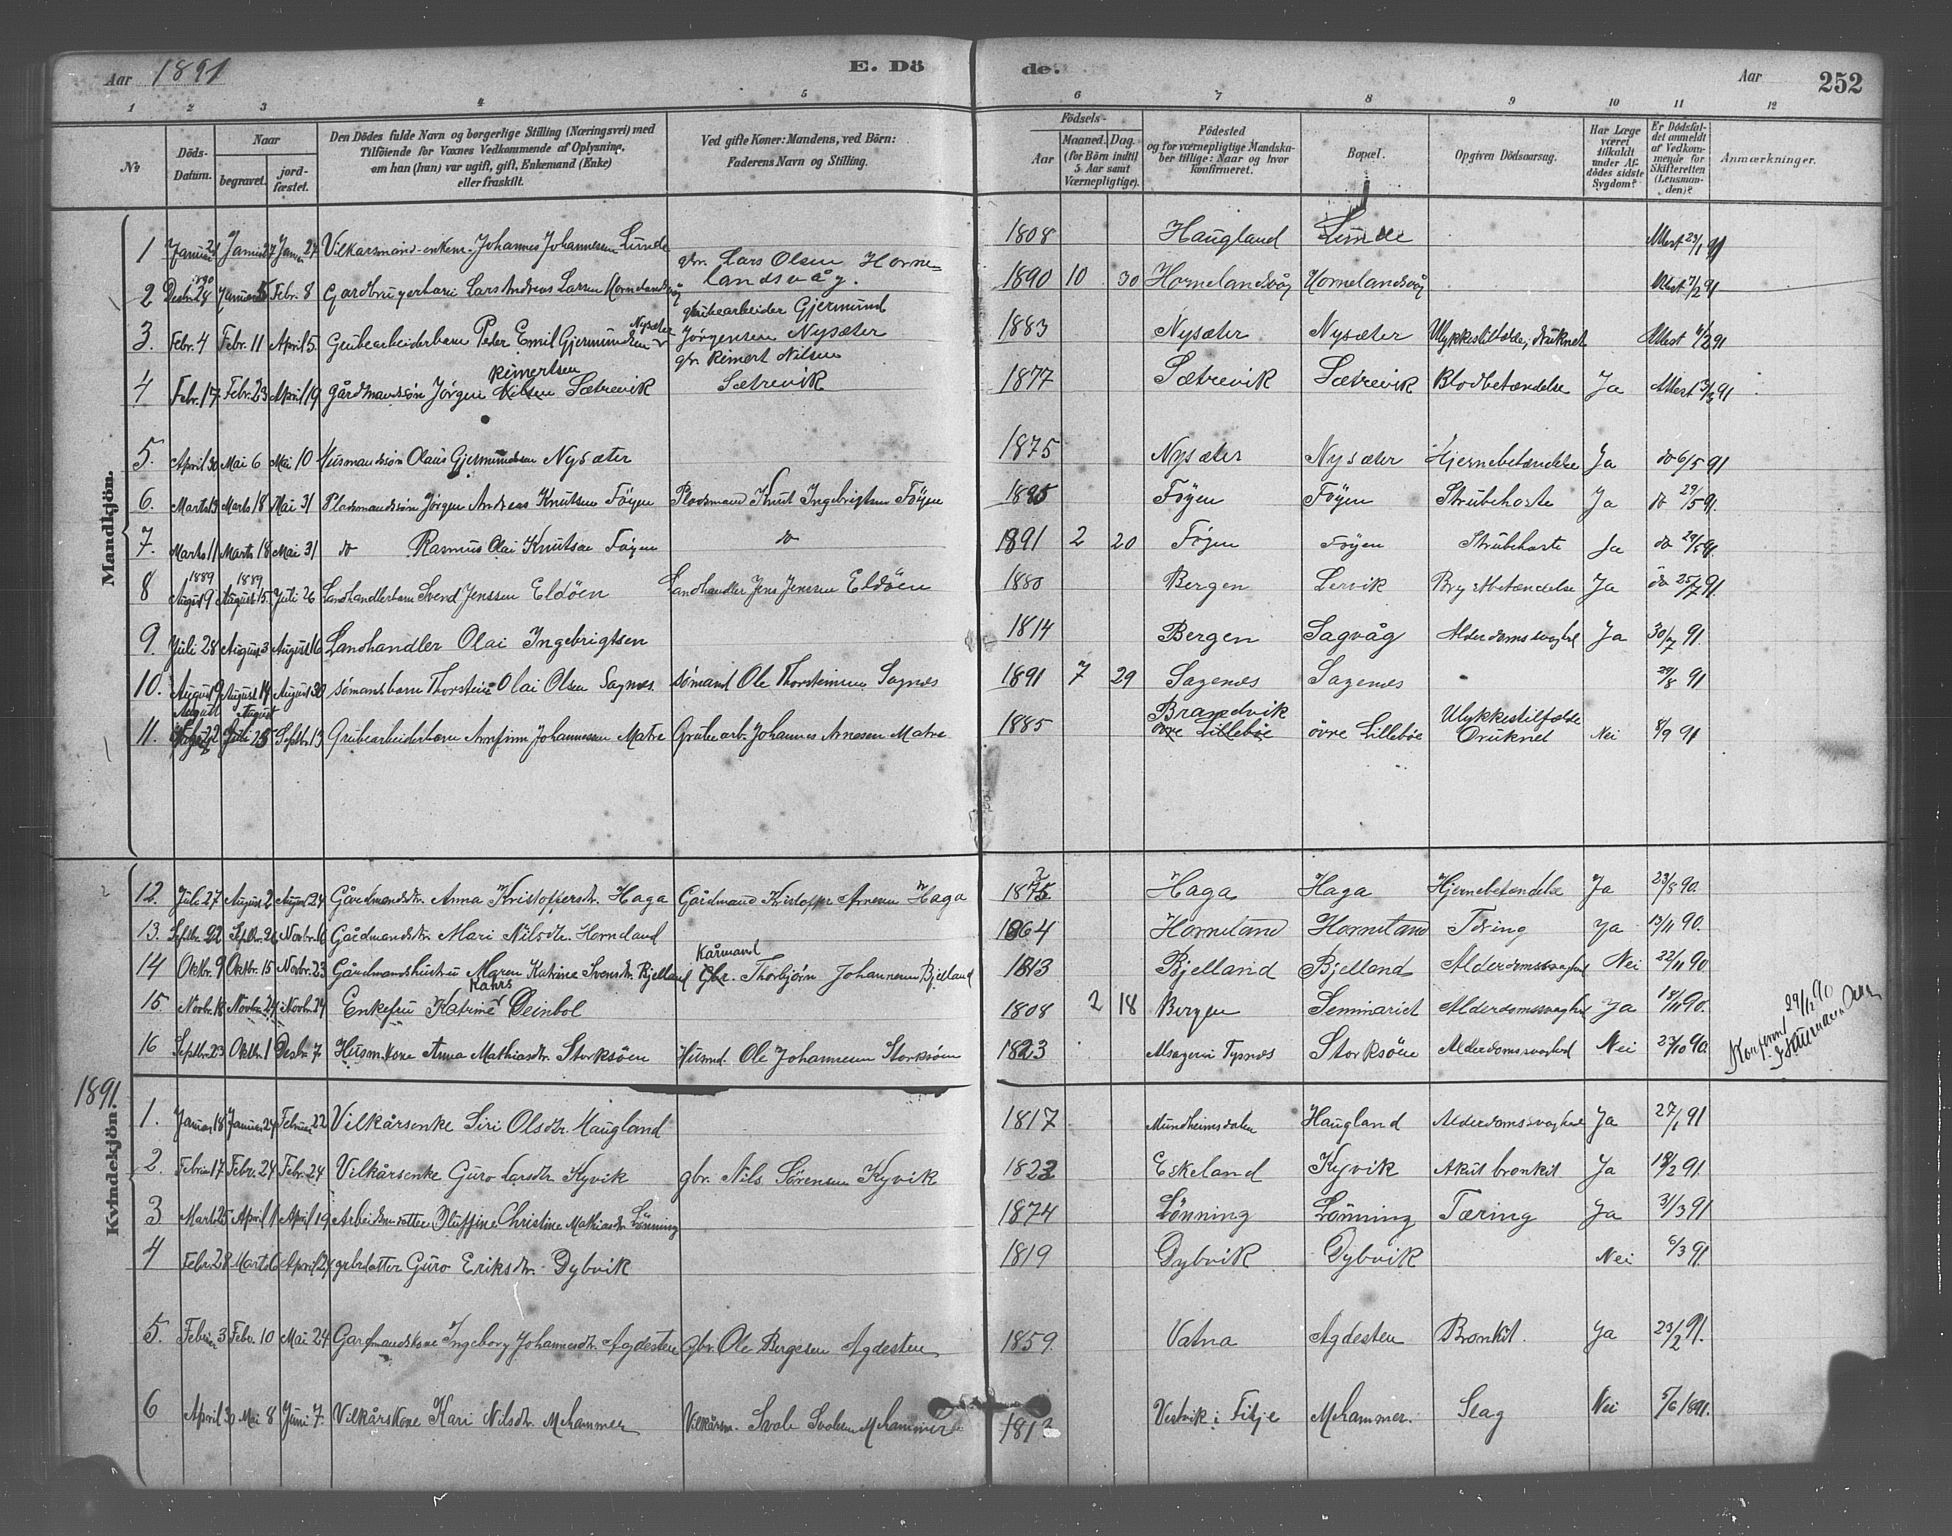 Aar 1891 E. Dö de. Aar 252
1 2 3 4 5 6 7 8 9 10 11 12
No. Döds-Datum. Naar begravet. jordfæstet. Den Dödes fulde Navn og borgerlige Stilling (Næringsvei) med Tilföiende for Voxnes Vedkommende af Oplysning, om han (hun) var ugift, gift, Enkemand (Enke) eller fraskilt. Ved gifte Koner: Mandens, ved Börn: Faderens Navn og Stilling. Födsels- Aar Maaned. Dag. (for Börn indtil 5 Aar samt Værnepligtige). Födested og for værnepligtige Mandskaber tillige: Naar og hvor konfirmeret. Bopæl. Opgiven Dödsaarsag. Har Læge været tilkaldt under Afdödes sidste Sygdom? Er Dödsfaldet anmeldt af Vedkommende for Skifteretten (Lensmanden)? Anmærkninger.
Mandkjön.
1 Januar 21 Januar 27 Januar 27 Vilkarsmand enkem. Johannes Johannesen Lunde 1808 Haugland Lunde Attest 23/1 91
2 1890 Desbr. 28 Januar 5 Febr. 8 Gardbrugerbarn Lars Andreas Larsen Hornelandsvåg gbr. Lars Olsen Hornelandsvåg. 1890 10 30 Hornelandsvåg Hornelandsvåg Attest 7/2 91
3. Febr. 4 Febr. 11 April 5. Grubearbeiderbarn Peder Emil Gjermundsen Nysæter grubearbeider Gjermund Jørgensen Nysæter 1883 Nysæter Nysæter Ulykkestilfælde, druknet Attest 11/2 91
4 Febr. 17 Febr. 23 April 19 gårdmandssön Jörgen Rimertsen Nilsen Sætrevik gbr. Rimert Nilsen Sætrevik 1877 Sætrevik Sætrevik Blodbetændelse Ja Attest 13/3 91
5. April 30 Mai 6 Mai 10 Husmandssön Olaus Gjermundsen Nysæter 1875 Nysæter Nysæter Hjernebetændelse Ja do 6/5 91
6. Marts 13 Marts 18 Mai 31 Pladsmandssön Jörgen Andreas Knutsen Föyen Pladsmand Knut Ingebrigtsen Föyen 1885 Föyen Föyen Strubehoste Ja do 29/5 91.
7. Marts 11 Marts 18 Mai 31 do Rasmus Olai Knutsen Föyen do 1891 2 20 Föyen Föyen Strubehoste Ja do 29/5 91.
8 1889 August 9 1889 August 15. Juli 26 Landhandlerbarn Svend Jenssen Eldöen Landhandler Jens Jenssen Eldöen 1880 Bergen Lervik Brystbetændelse Ja do 25/7 91
9. Juli 28 August 3 August 16 Landhandler Olai Ingebrigtsen 1814 Bergen Sagvåg Alderdomssvaghed Ja 30/7 91.
10. August 9 August 14 August 30 sömansbarn Thorsteine Olai Olsen Sagnes. sömand Ole Thorsteinsen Sagnes 1891 7 29 Sagenes Sagenes 29/8 91
11. August 22 August 28 Septbr. 13 Grubearbeiderbarn Arnfinn Johannessen Matre Grubearb. Johannes Arnesen Matre 1885 Brandvik övre Lilleböe övre Lilleböe Ulykkestilfælde Druknet Nei 8/9 91
12. Juli 27 August 2 August 24 Gårdmandsdtr. Anna Kristoffersdtr. Haga Gårdmand Kristoffer Arnesen Haga 1875 Haga Haga Hjernebetændelse Ja 23/8 90.
13. Septbr. 22 Septbr. Novbr. 16 Gårdmandsdtr. Mari Nilsdtr. Horneland 1864 Horneland Horneland Tæring Ja 13/11 90.
14 Oktbr. 9 Oktbr. 15 Novbr. 23 Gårdmandshustru Maren Katrine Svensdtr. Bjelland Kårmand Gbr. Thorbjörn Johannesen Bjelland 1813 Bjelland Bjelland Alderdomssvaghed Nei 22/11 90
15. Novbr. 18 Novbr. 24 Novbr. 24 Enkefru Katrine Kahrs Deinbol 1808 2 18 Bergen Seminariet Alderdomssvaghed Ja 18/11 90.
16 Septbr. 23 Oktbr. 1 Desbr. 7. Husm.kone Anna Mathiasdtr. Storksöen Husmd. Ole Johannesen Storksöen 1823 Tysnes Storksöen Alderdomssvaghed Nei 27/10 90.
29/12 90
1891.
Kvindekjön.
1. Januar 18 Januar 24 Februar 22 Vilkårsenke Siri Olsdtr. Haugland 1817 Mundheimsdalen Haugland Alderdomssvaghed Ja 27/1 91
2. Februar 17 Febr. 24 Febr. 24 Vilkårsenke Guro Larsdtr Kyvik gbr. Nils Sörensen Kyvik 1822 Eskeland Kyvik Akut bronkit Ja 18/2 91.
3 Marts 25 April 1 April 19 Arbeidsmdatter Christine Mathiasdtr Lönning 1874 Lönning Lönning Tæring Ja 31/3 91
4 Febr. 28 Marts 6 April 24 gbrdatter Guro Eriksdtr. Dybvik 1819 Dybvik Dybvik Nei 6/3 91.
5. Februar 3 Febr. 10 Mai 24 Gardmandskone Ingeborg Johannesdtr. Agdesten gbr. Ole Bergesen Agdesten 1859. Vatna Agdesten Bronkit. Ja 23/2 91.
6 April 30 Mai 8 Juni 7. Vilkårskone Kari Nilsdtr. Mehammer Vilkårsm. Mehammer 1812 Vestvik i Fitje Mehammer. Slag Nei 5/6 1891.